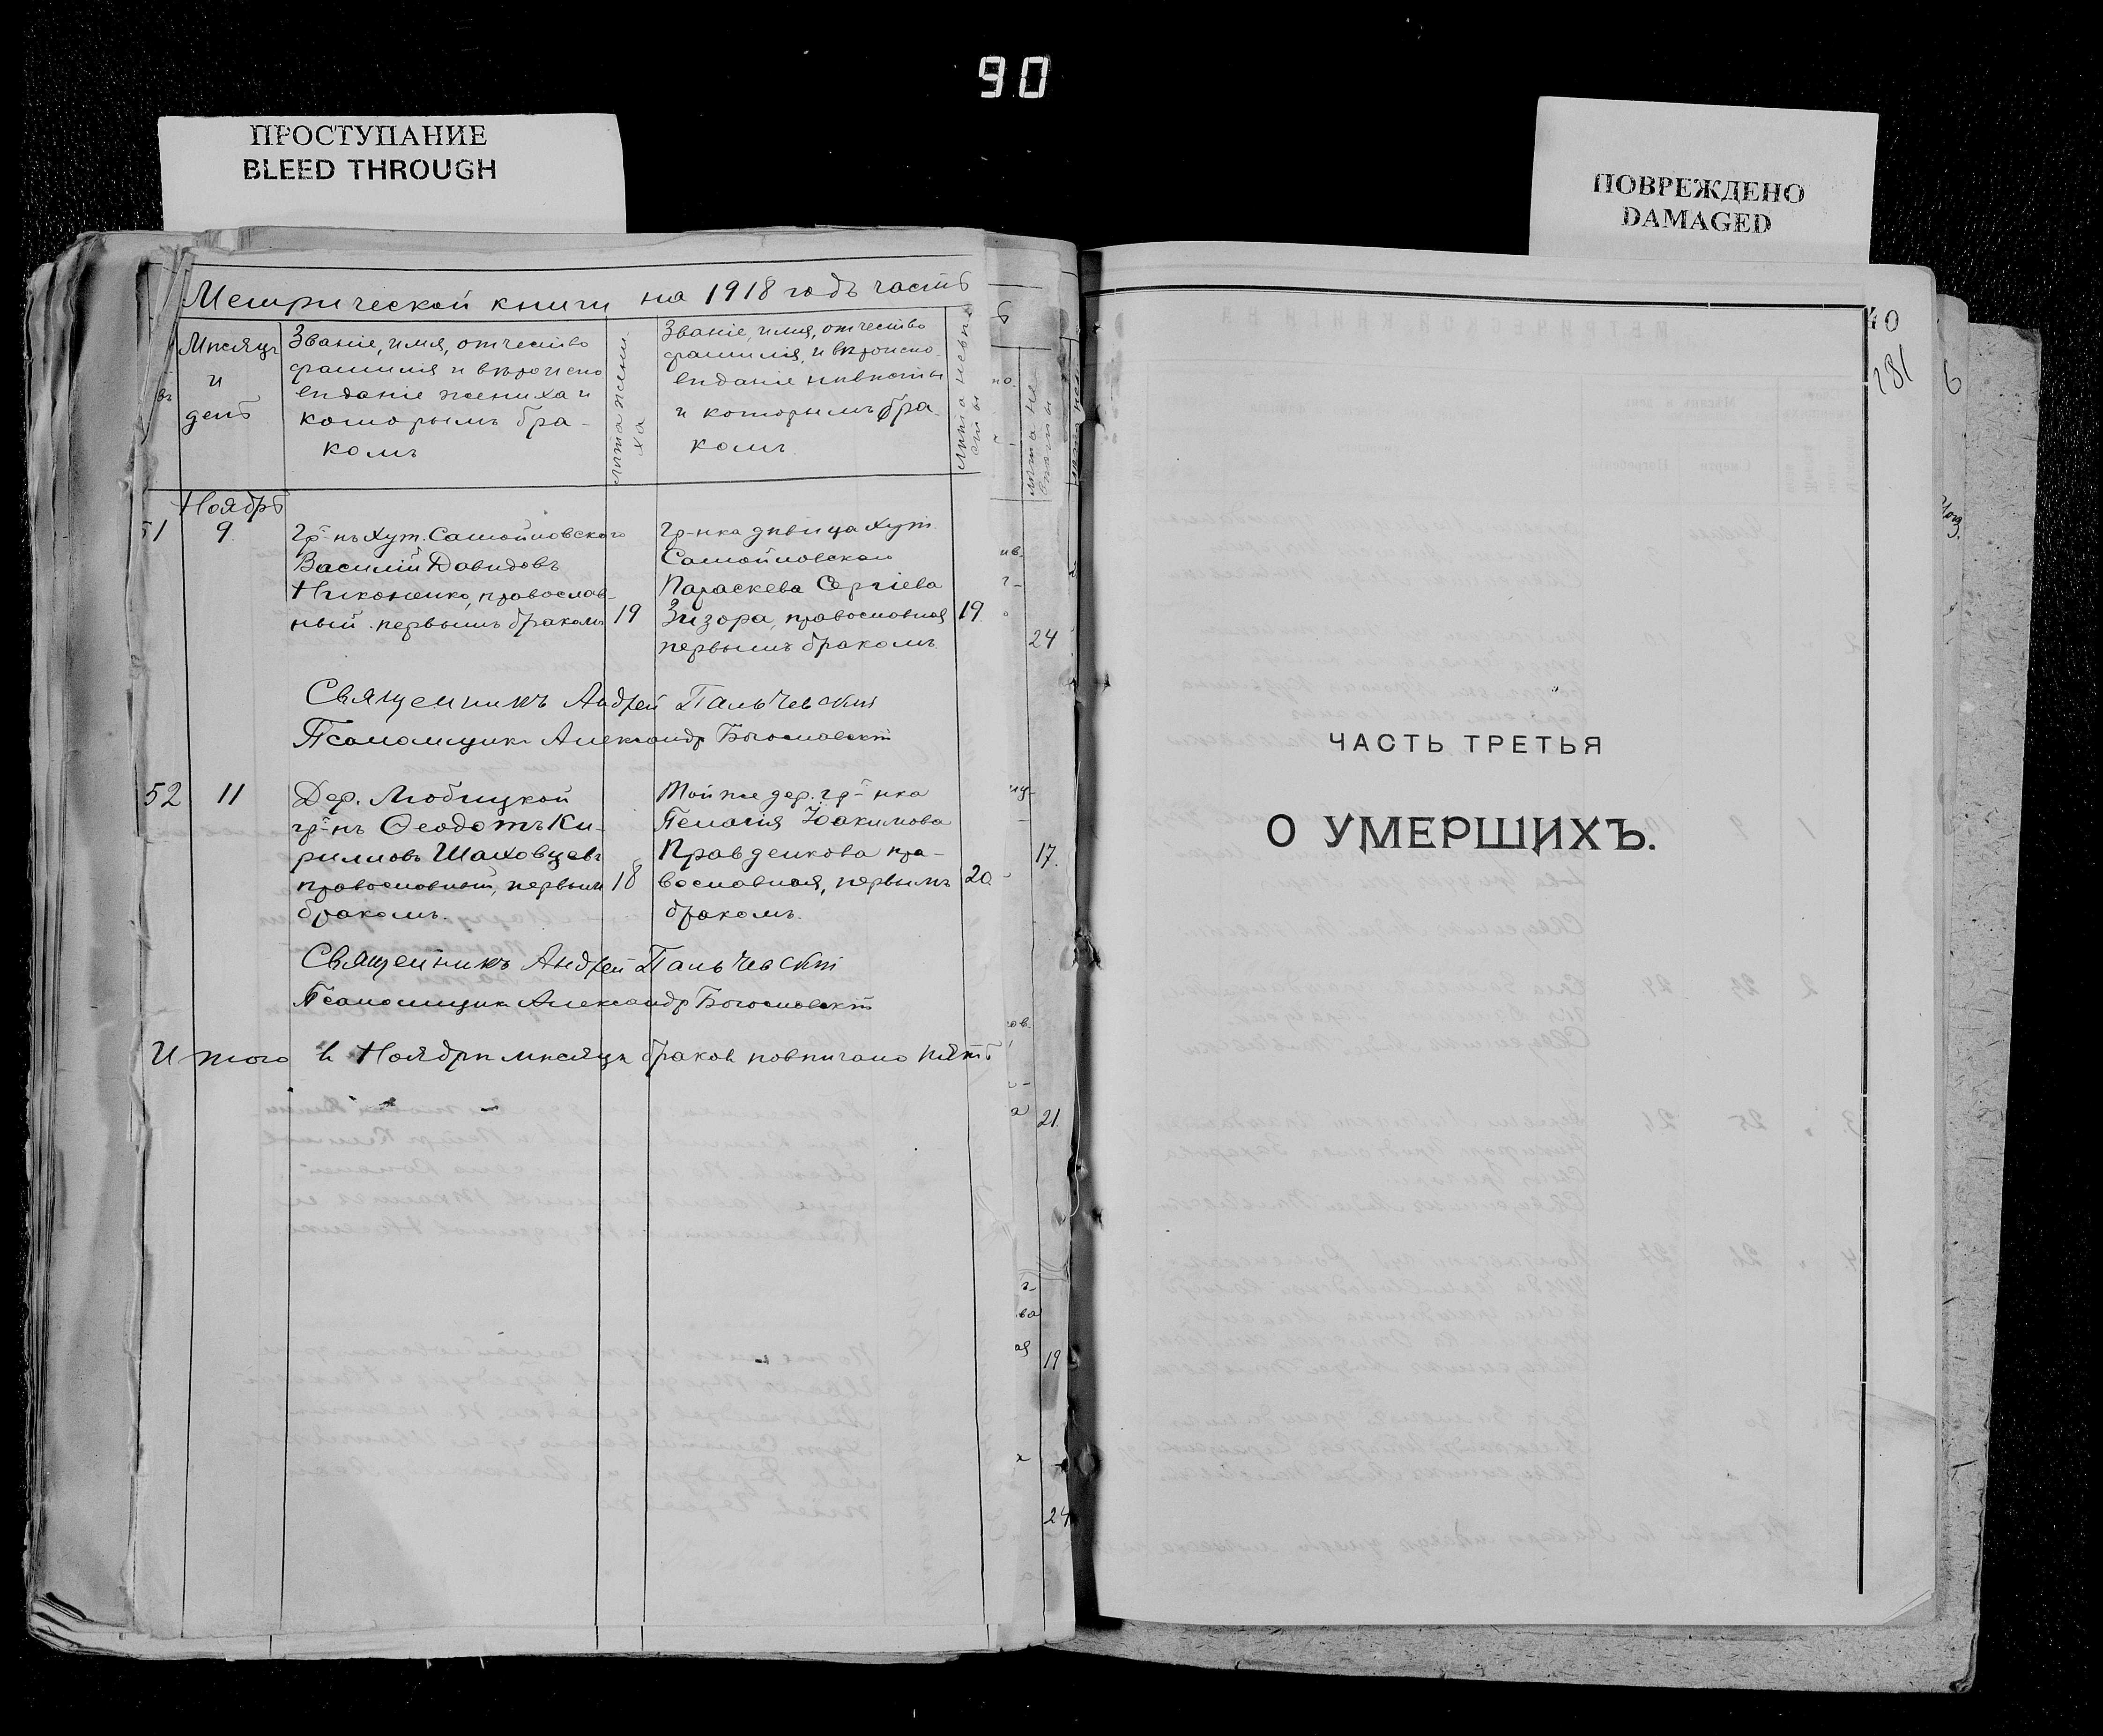 90
ПРОСТУПАНИЕ
BLEED THROUGH
ПОВРЕЖДЕНО
DAMAGED
Метрической книги на 1918 годъ часть
Мѣсяцъ
и
день
Званіе, имя, отчество
фамилія и вѣроиспо
вѣданіе жениха и
которымъ бра-
комъ
лѣта жени-
ха
Званіе, имя, отчество
фамилія, и вѣроиспо-
вѣданіе невѣсты
и которымъ бра-
комъ
лѣта невѣ
сты
Ноябрь
51
9
Гр-нъ хут. Самойловского
Василій Давидовъ
Никоненко, православ-
ный первымъ бракомъ
19
Гр-нка дѣвица хут.
Самойловскаго
Параскева Сергіева
Зизора, православная
первымъ бракомъ
19
24
Священникъ Андрей Пальчевскій
Псаломщикъ Александр Богословскій
52
11
Дер. Любицкой
гр-нъ Ѳеодотъ Ки-
рилловъ Шаховцевъ
православный, первымъ
бракомъ.
18
Той же дер. гр-нка
Пелагія Іоакимова
Правденкова пра-
вославная, первымъ
бракомъ.
20
17.
Священникъ Андрей Пальчевскій
Псаломщикъ Александр Богословскій
Итого в Ноябрѣ мѣсяцѣ браков повѣнчано пять
21.
19
24
40
281
6
ЧАСТЬ ТРЕТЬЯ
О УМЕРШИХЪ.